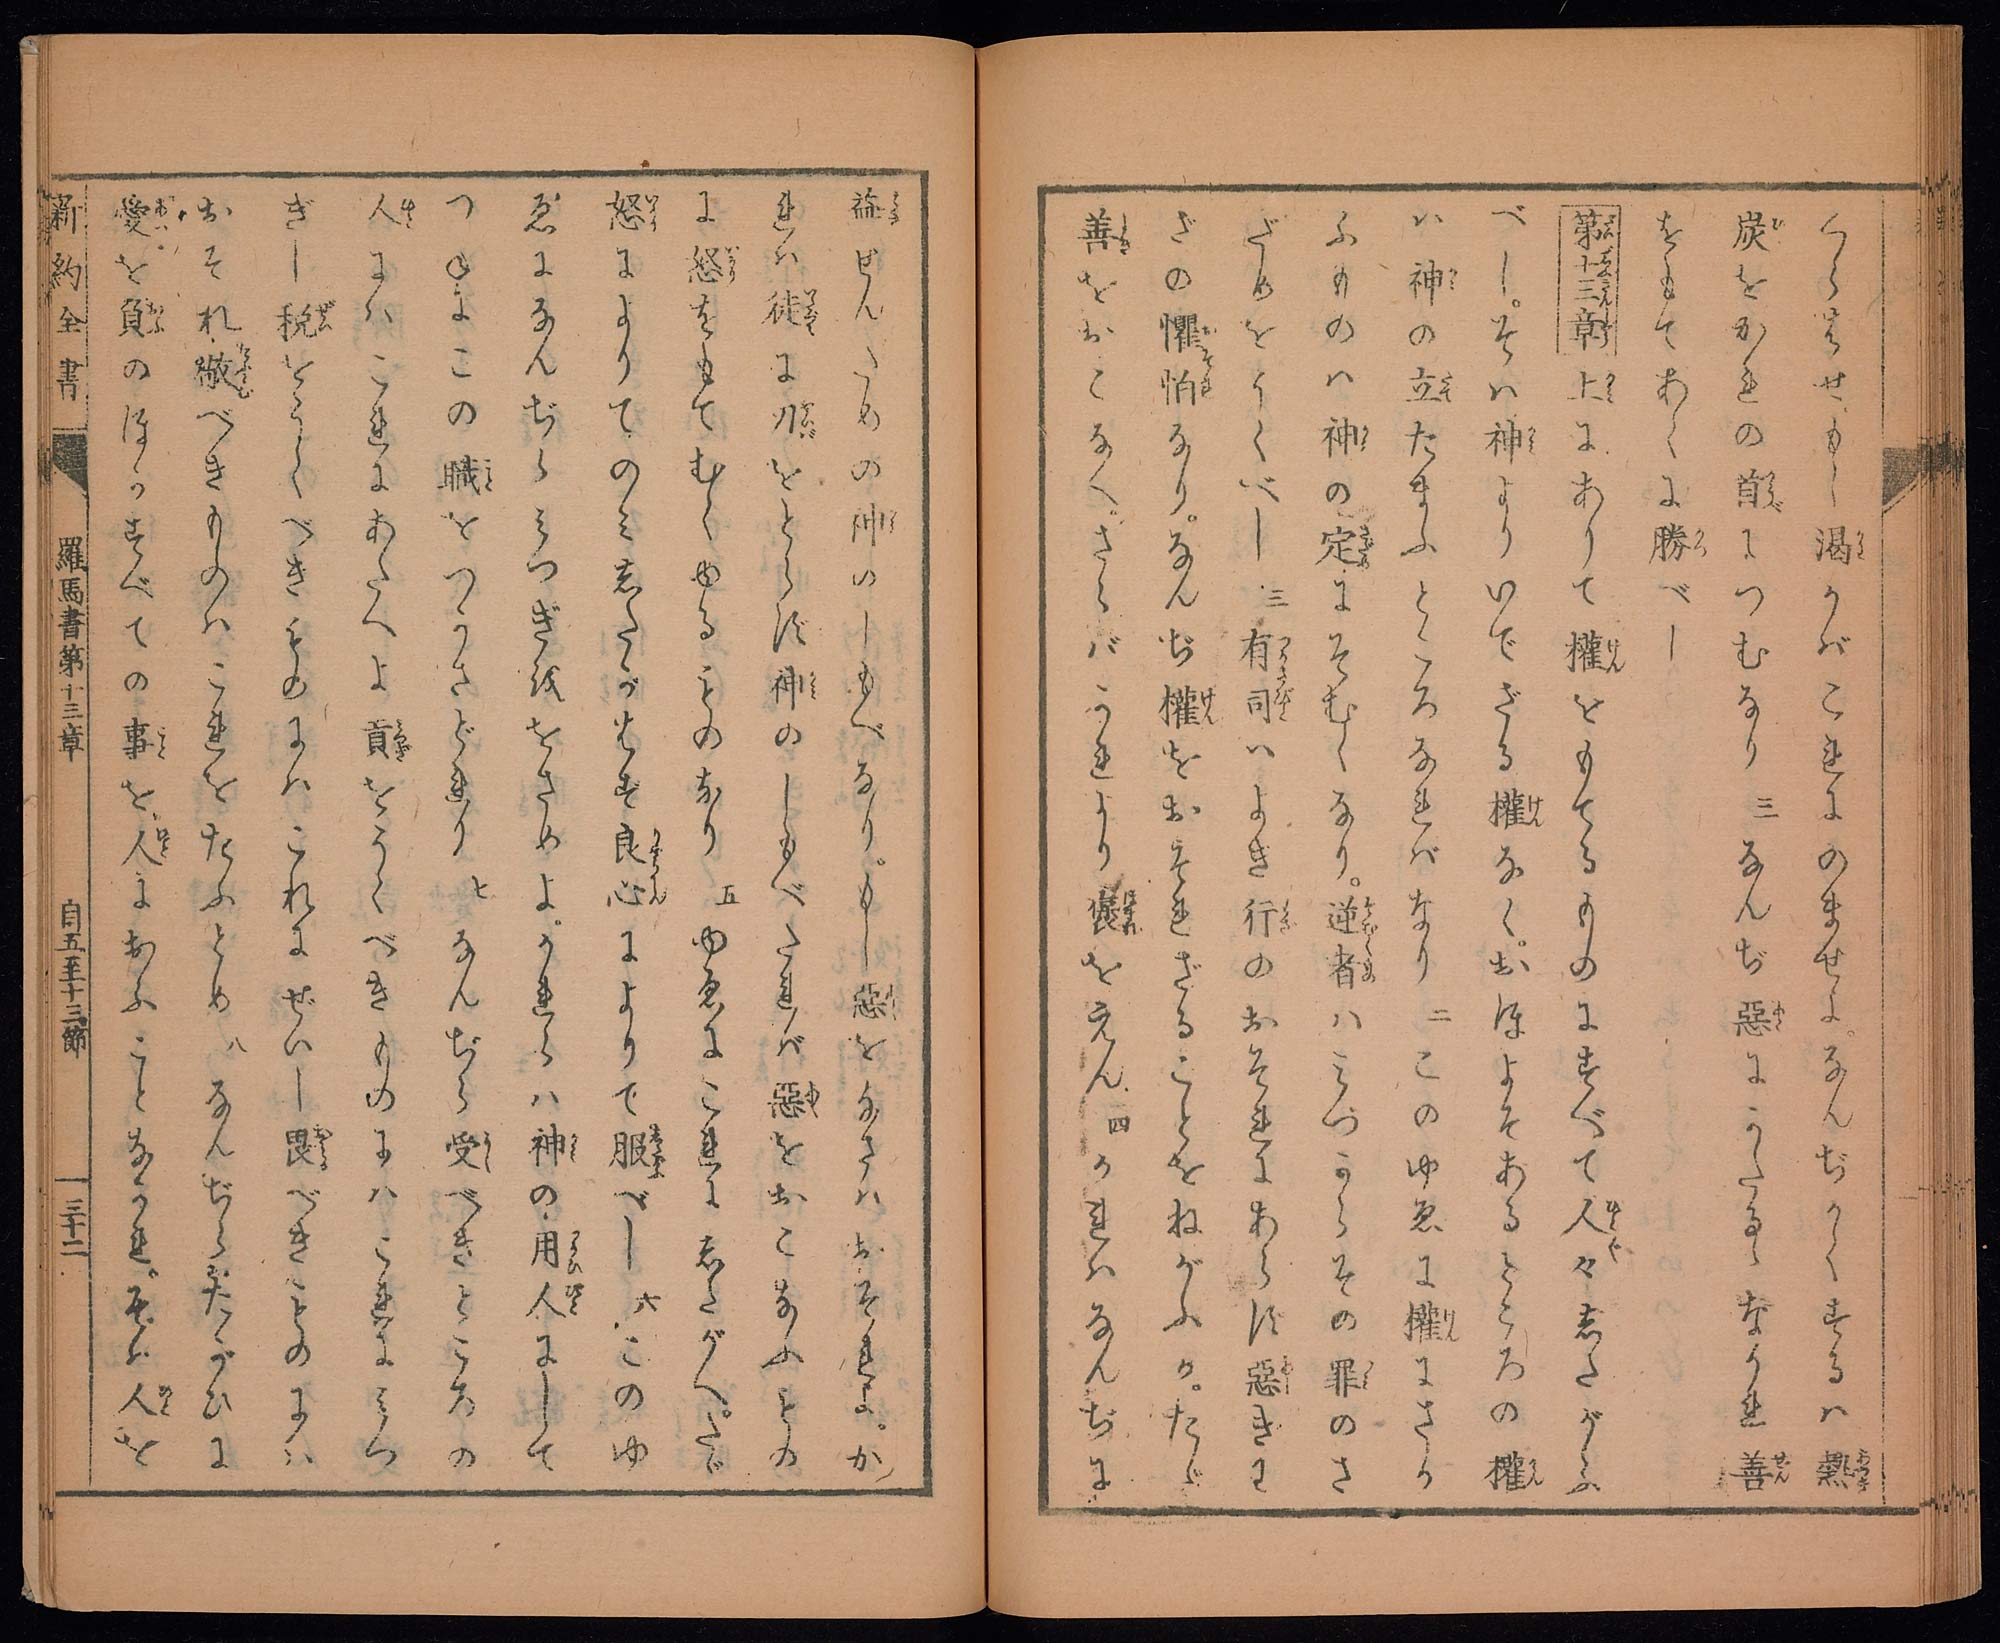 くらはせもし渇かばこれにのませよ。なんぢかくするハ熱
炭をかれの首につむなり 三 なんぢ惡にかたるゝなかれ善
をもてあくに勝べし
第十三章 上にありて權をもてるものにすべて人々志たがふ
べし。そハ神よりいでざる權なく。おほよそあるところの權
ハ神の立たまふところなれバなり 二 このゆゑに權にさか
ふものハ神の定にそむくなり。逆者ハみづからその罪のさ
だめをうくべし 三 有司ハよき行のおそれにあらず惡きわ
ざの懼怕なり。なんぢ權をおそれざることをねがふか。たゞ
善をおこなへ。さらバかれより褒をえん 四 かれハなんぢに
益せんための神のしもべなり。もし惡をなさハおそれよ。か
れハ徒に刀をとらず神のしもべたれバ惡をおこなふもの
に怒をもてむくゆるものなり 五 ゆゑにこれに志たがへ。たゞ
怒によりてのミ志たがはず良心によりて服べし 六 このゆ
ゑになんぢらみつぎをおさめよ。かれらハ神の用人にして
つねにこの職をつかさどれり 七 なんぢら受べきところの
人にハこれにあたへよ貢をうくべきものにハこれにみつ
ぎし税をうくべきものにハこれにぜいし畏べきものにハ
おそれ敬べきものハこれをたふとめ 八 なんぢらたがひに
愛を負のほかすべての事を人におふことなかれ。そハ人を
新約全書 羅馬書第十三章 自五至十三節 三十二